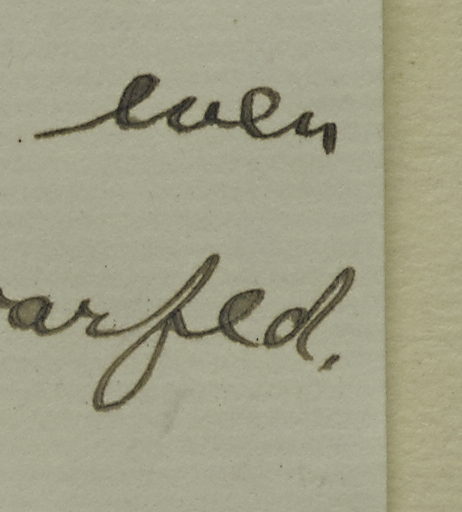 even
arfed.